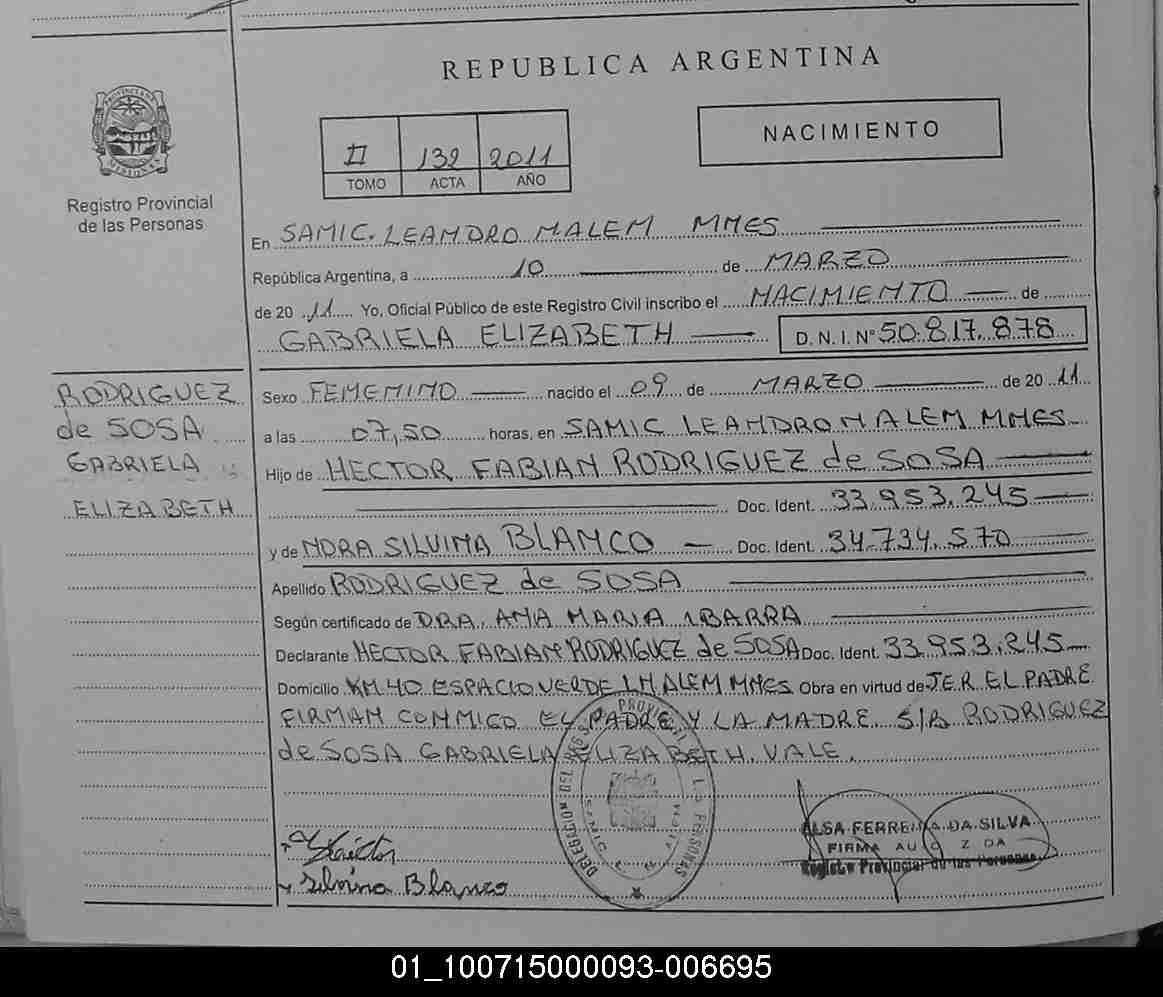 REPUBLICA ARGENTINA
PROVINCIA DE MISIONES
Registro Provincial
de las Personas
II 132 2011
TOMO ACTA AÑO
NACIMIENTO
En SAMIC. LEANDRO N ALEM MNES
República Argentina, a 10 de MARZO
de 2011 Yo, Oficial Público de este Registro Civil inscribo el NACIMIENTO de
GABRIELA ELIZABETH D. N. I. Nº 50.817.878
RODRIGUEZ
de SOSA
GABRIELA
ELIZABETH
Sexo FEMENINO nacido el 09 de MARZO de 2011
a las 07,50 horas, en SAMIC LEANDRO N ALEM MNES
Hijo de HECTOR FABIAN RODRIGUEZ de SOSA
Doc. Ident. 33.953.245
y de NORA SILVINA BLANCO Doc. Ident. 34.734.570
Apellido RODRIGUEZ de SOSA
Según certificado de DRA. ANA MARIA IBARRA
Declarante HECTOR FABIAN RODRIGUEZ de SOSA Doc. Ident. 33.953.245
Domicilio KM 40 ESPACIO VERDE LN ALEM MNES Obra en virtud de J.E.R. EL PADRE
FIRMAN CONMIGO EL PADRE Y LA MADRE. S/R RODRIGUEZ
de SOSA GABRIELA ELIZABETH. VALE.
ELSA FERREIRA DA SILVA
Registro Provincial de las Personas
Hector
Silvina Blanco
01_100715000093-006695